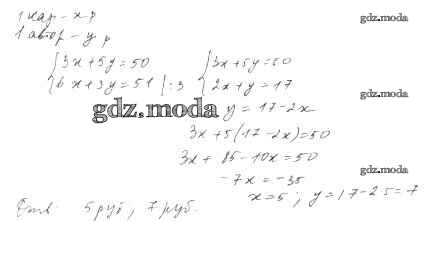 1 кар - x р gdz.moda
1 автор - y р
{3x + 5y = 50 {3x + 5y = 50
{6x + 3y = 51 | : 3 {2x + y = 17 gdz.moda
gdz.moda y = 17 - 2x
3x + 5(17 - 2x) = 50
3x + 85 - 10x = 50
-7x = -35 gdz.moda
x = 5 ; y = 17 - 2·5 = 7
Отв: 5 руб, 7 руб.